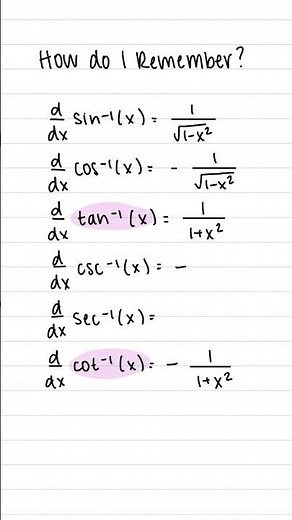 How do I Remember?
d/dx sin⁻¹(x) = 1/√(1-x²)
d/dx cos⁻¹(x) = - 1/√(1-x²)
d/dx tan⁻¹(x) = 1/(1+x²)
d/dx csc⁻¹(x) = -
d/dx sec⁻¹(x) =
d/dx cot⁻¹(x) = - 1/(1+x²)